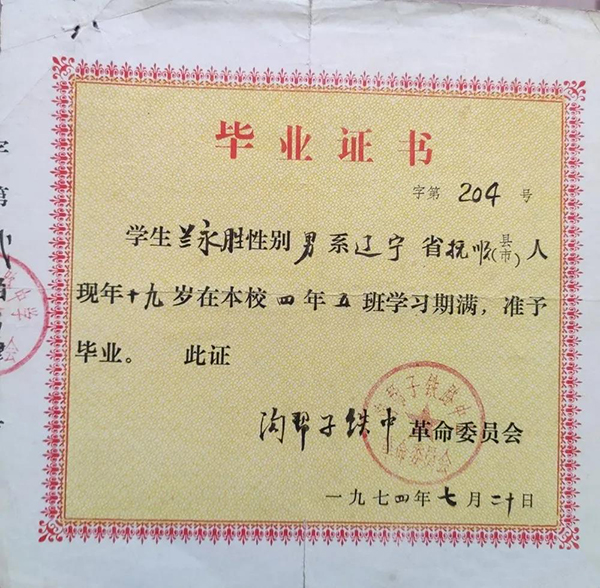 毕业证书
字第 204 号
学生兰永胜性别男系辽宁省抚顺(县市)人
现年十九岁在本校四年五班学习期满，准予
毕业。 此证
沟帮子铁中革命委员会
一九七四年七月二十日